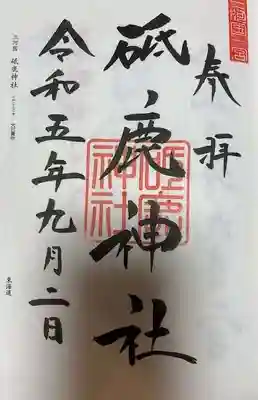 奉拝
砥ノ鹿神社
砥鹿神社
令和五年九月二日
三河國 砥鹿神社
東海道